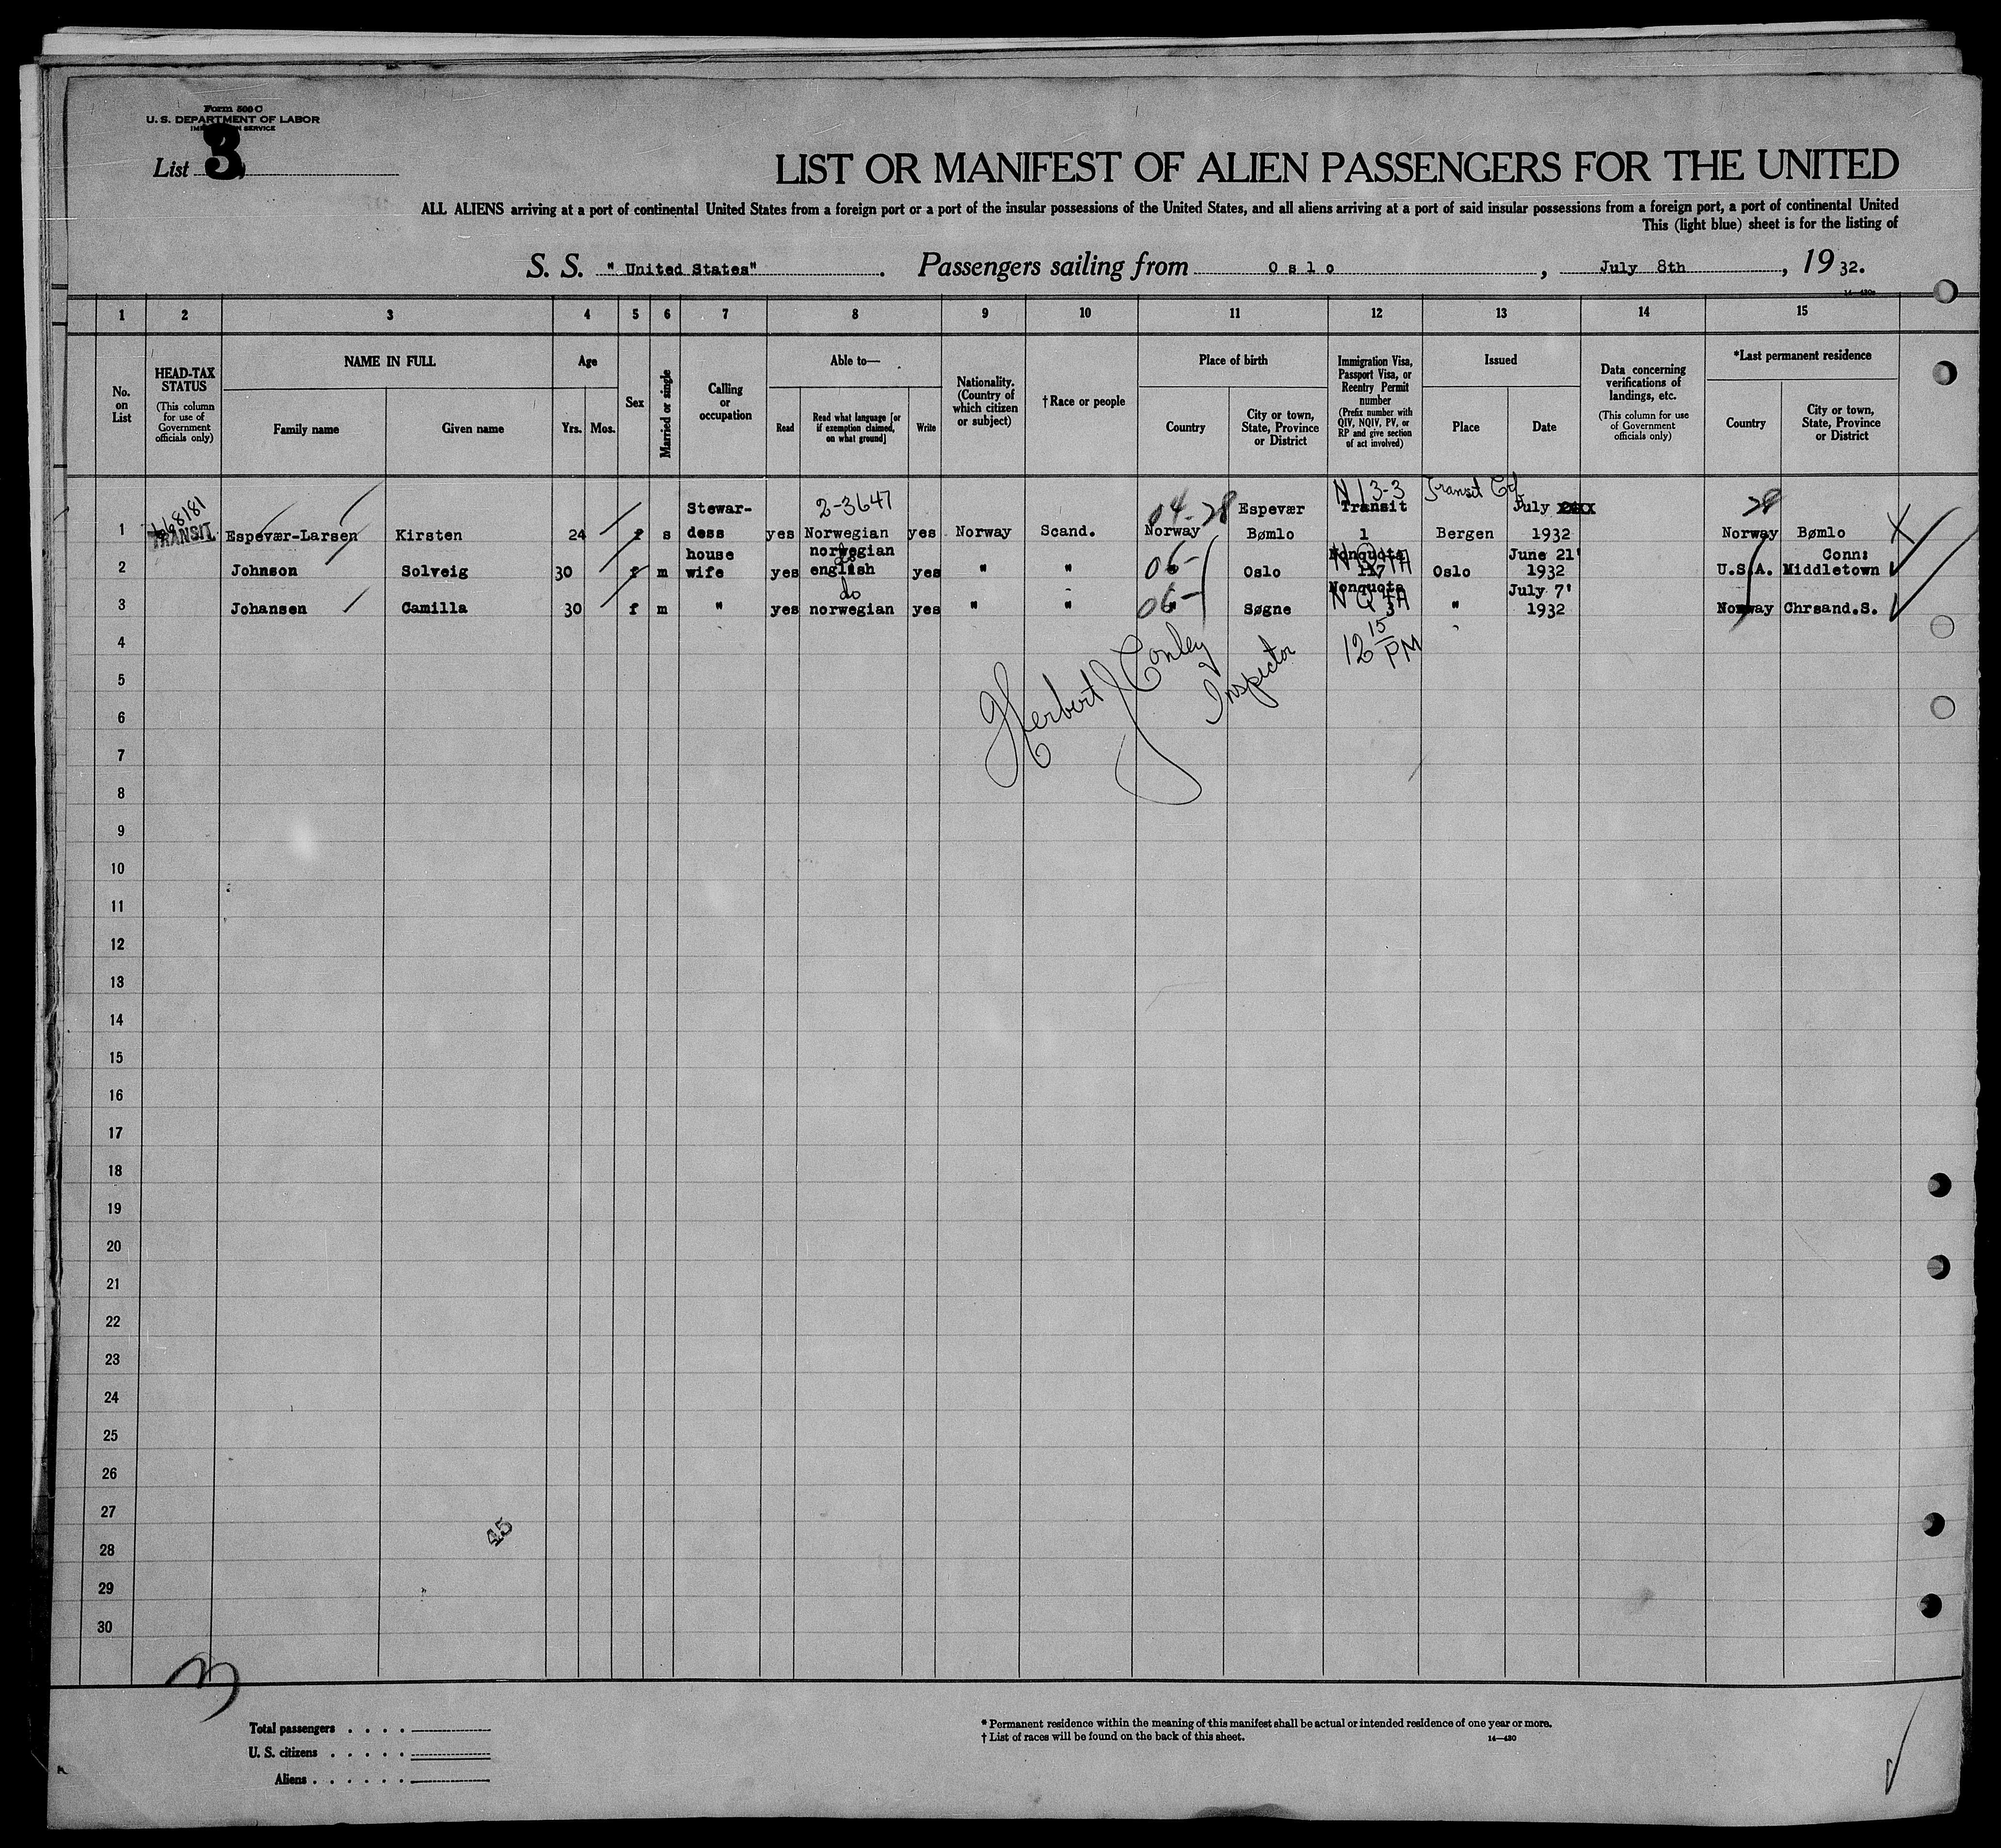 Form 500 C
U. S. DEPARTMENT OF LABOR
SERVICE
List 3
LIST OR MANIFEST OF ALIEN PASSENGERS FOR THE UNITED
ALL ALIENS arriving at a port of continental United States from a foreign port or a port of the insular possessions of the United States, and all aliens arriving at a port of said insular possessions from a foreign port, a port of continental United
This (light blue) sheet is for the listing of
S. S. "United States". Passengers sailing from Oslo, July 8th, 1932.
1 2 3 4 5 6 7 8 9 10 11 12 13 14 15
No. on List
HEAD-TAX STATUS (This column for use of Government officials only)
NAME IN FULL
Family name Given name
Age
Yrs. Mos.
Sex
Married or single
Calling or occupation
Able to—
Read
Read what language [or if exemption claimed, on what ground]
Write
Nationality. (Country of which citizen or subject)
†Race or people
Place of birth
Country
City or town, State, Province or District
Immigration Visa, Passport Visa, or Reentry Permit number (Prefix number with QIV, NQIV, PV, or RP and give section of act involved)
Issued
Place Date
Data concerning verifications of landings, etc. (This column for use of Government officials only)
*Last permanent residence
Country
City or town, State, Province or District
2-3647 N 13-3 Transit
Stewar- 04-28 Espevær Transit July 28
1 TRANSIT Espevær-Larsen Kirsten 24 f s dess yes Norwegian yes Norway Scand. Norway Bømlo 1 Bergen 1932 Norway Bømlo
house norwegian Nonquota June 21' Conn:
2 Johnson Solveig 30 f m wife yes english yes " " 06- Oslo Oslo 1932 U.S.A. Middletown
do Nonquota July 7'
3 Johansen Camilla 30 f m " yes norwegian yes " " 06- Søgne 3 " 1932 Norway Chrsand.S.
12 15 PM
Herbert J Conley
Inspector
4
5
6
7
8
9
10
11
12
13
14
15
16
17
18
19
20
21
22
23
24
25
26
27
45
28
29
30
3
Total passengers
U. S. citizens
Aliens
* Permanent residence within the meaning of this manifest shall be actual or intended residence of one year or more.
† List of races will be found on the back of this sheet.
14—430